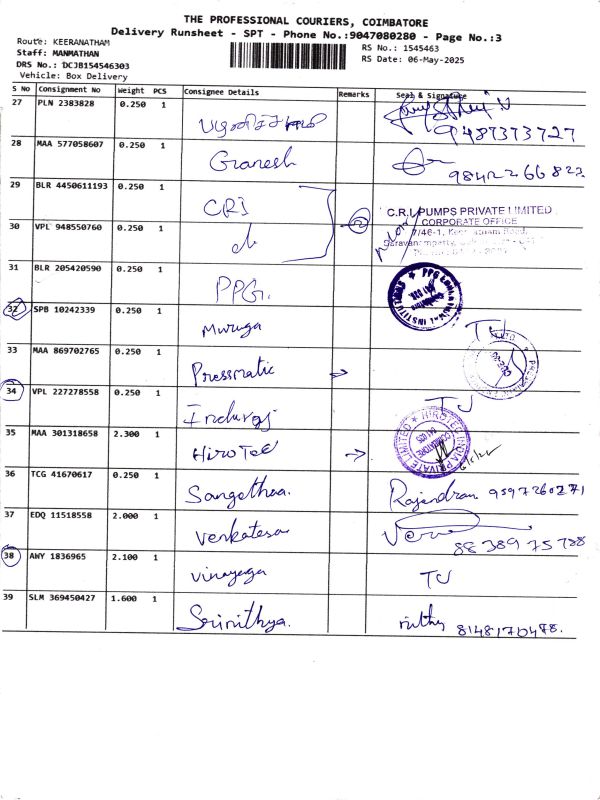 THE PROFESSIONAL COURIERS, COIMBATORE
Delivery Runsheet - SPT - Phone No.:9047080280 - Page No.:3
Route: KEERANATHAM
RS No.: 1545463
Staff: MANMATHAN
RS Date: 06-May-2025
DRS No.: DCJB154546303
Vehicle: Box Delivery
S No Consignment No Weight PCS Consignee Details Remarks Seal & Signature
27 PLN 2383828 0.250 1 9487373727
28 MAA 577058607 0.250 1 Ganesh
29 BLR 4450611193 0.250 1 CRI
C.R.I. PUMPS PRIVATE LIMITED
CORPORATE OFFICE
30 VPL 948550760 0.250 1 do
31 BLR 205420590 0.250 1 PPG.
32 SPB 10242339 0.250 1 Muruga
33 MAA 869702765 0.250 1 Pressmatic
34 VPL 227278558 0.250 1 Induraj
35 MAA 301318658 2.300 1 HiroTec
HIROTEC INDIA PRIVATE LIMITED
36 TCG 41670617 0.250 1 Sangethaa. Rajendran 9597260271
37 EDQ 11518558 2.000 1 Venkatesa 8838975788
38 AWY 1836965 2.100 1 Vinayaga
39 SLM 369450427 1.600 1 Srinithya. 8148170478.